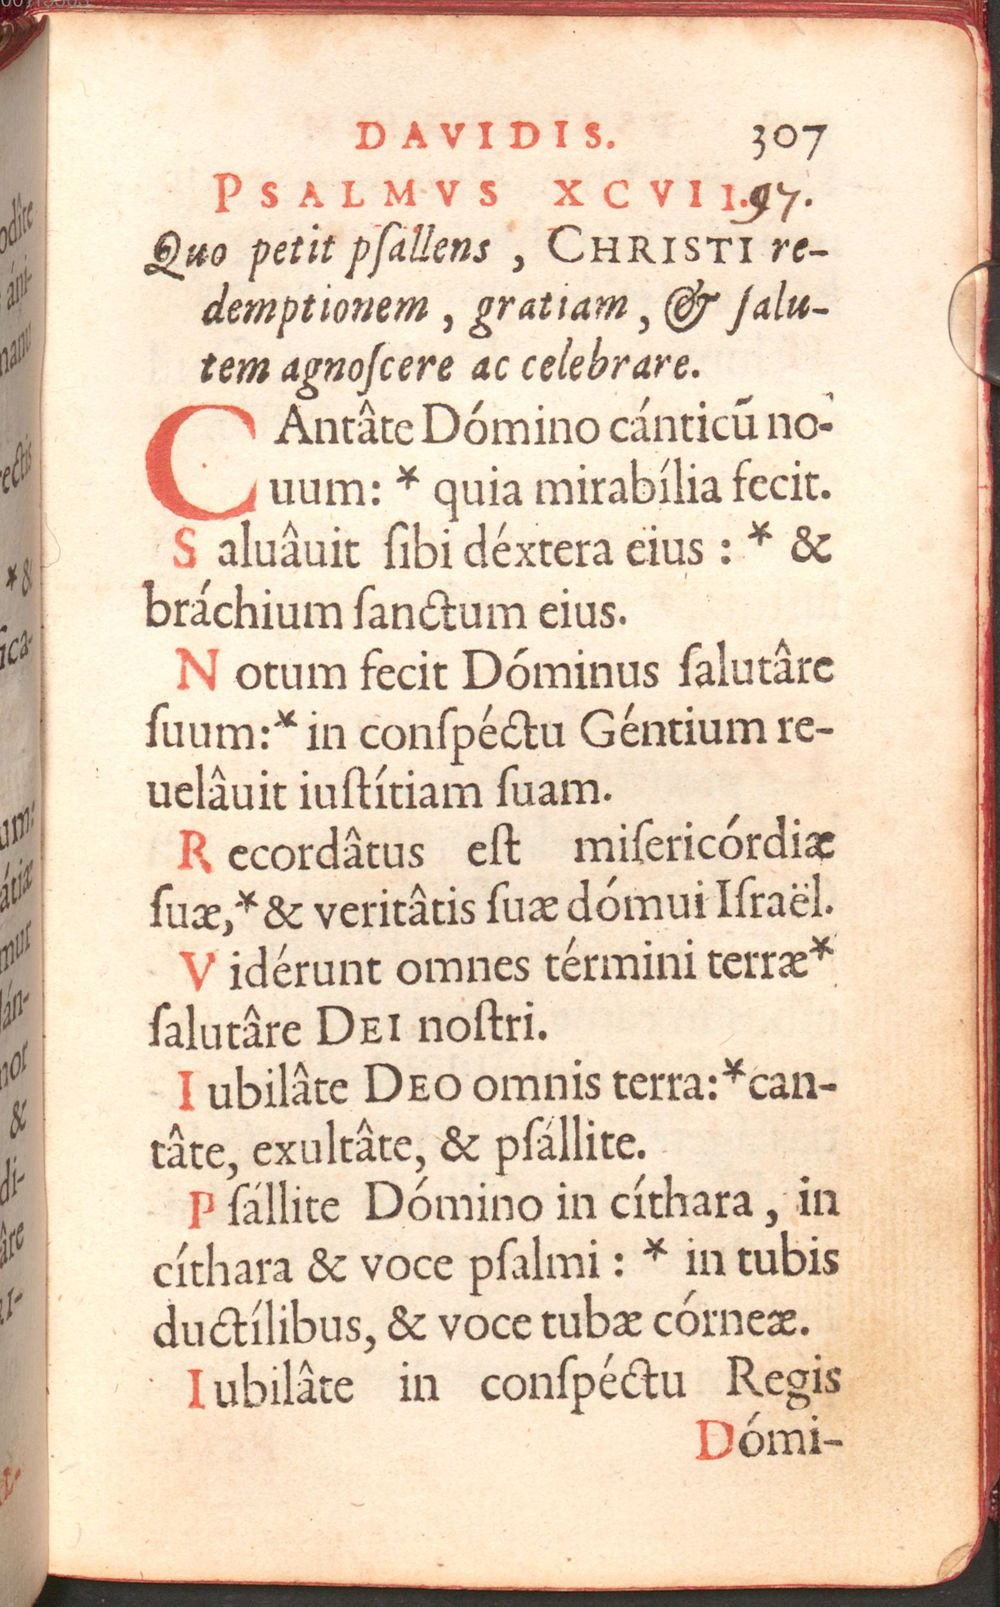 DAVIDIS. 307
PSALMVS XCVII. 97.
Quo petit pſallens, CHRISTI re-
demptionem, gratiam, & ſalu-
tem agnoſcere ac celebrare.
CAntâte Dómino cánticū no-
uum: * quia mirabília fecit.
Saluâuit ſibi déxtera eius : * &
bráchium ſanctum eius.
Notum fecit Dóminus ſalutâre
ſuum:* in conſpéctu Géntium re-
uelâuit iuſtítiam ſuam.
Recordâtus eſt miſericórdiæ
ſuæ,* & veritâtis ſuæ dómui Iſraël.
Vidérunt omnes términi terræ*
ſalutâre DEI noſtri.
Iubilâte DEO omnis terra:* can-
tâte, exultâte, & pſállite.
Pſállite Dómino in cíthara, in
cíthara & voce pſalmi : * in tubis
ductílibus, & voce tubæ córneæ.
Iubilâte in conſpéctu Regis
Dómi-